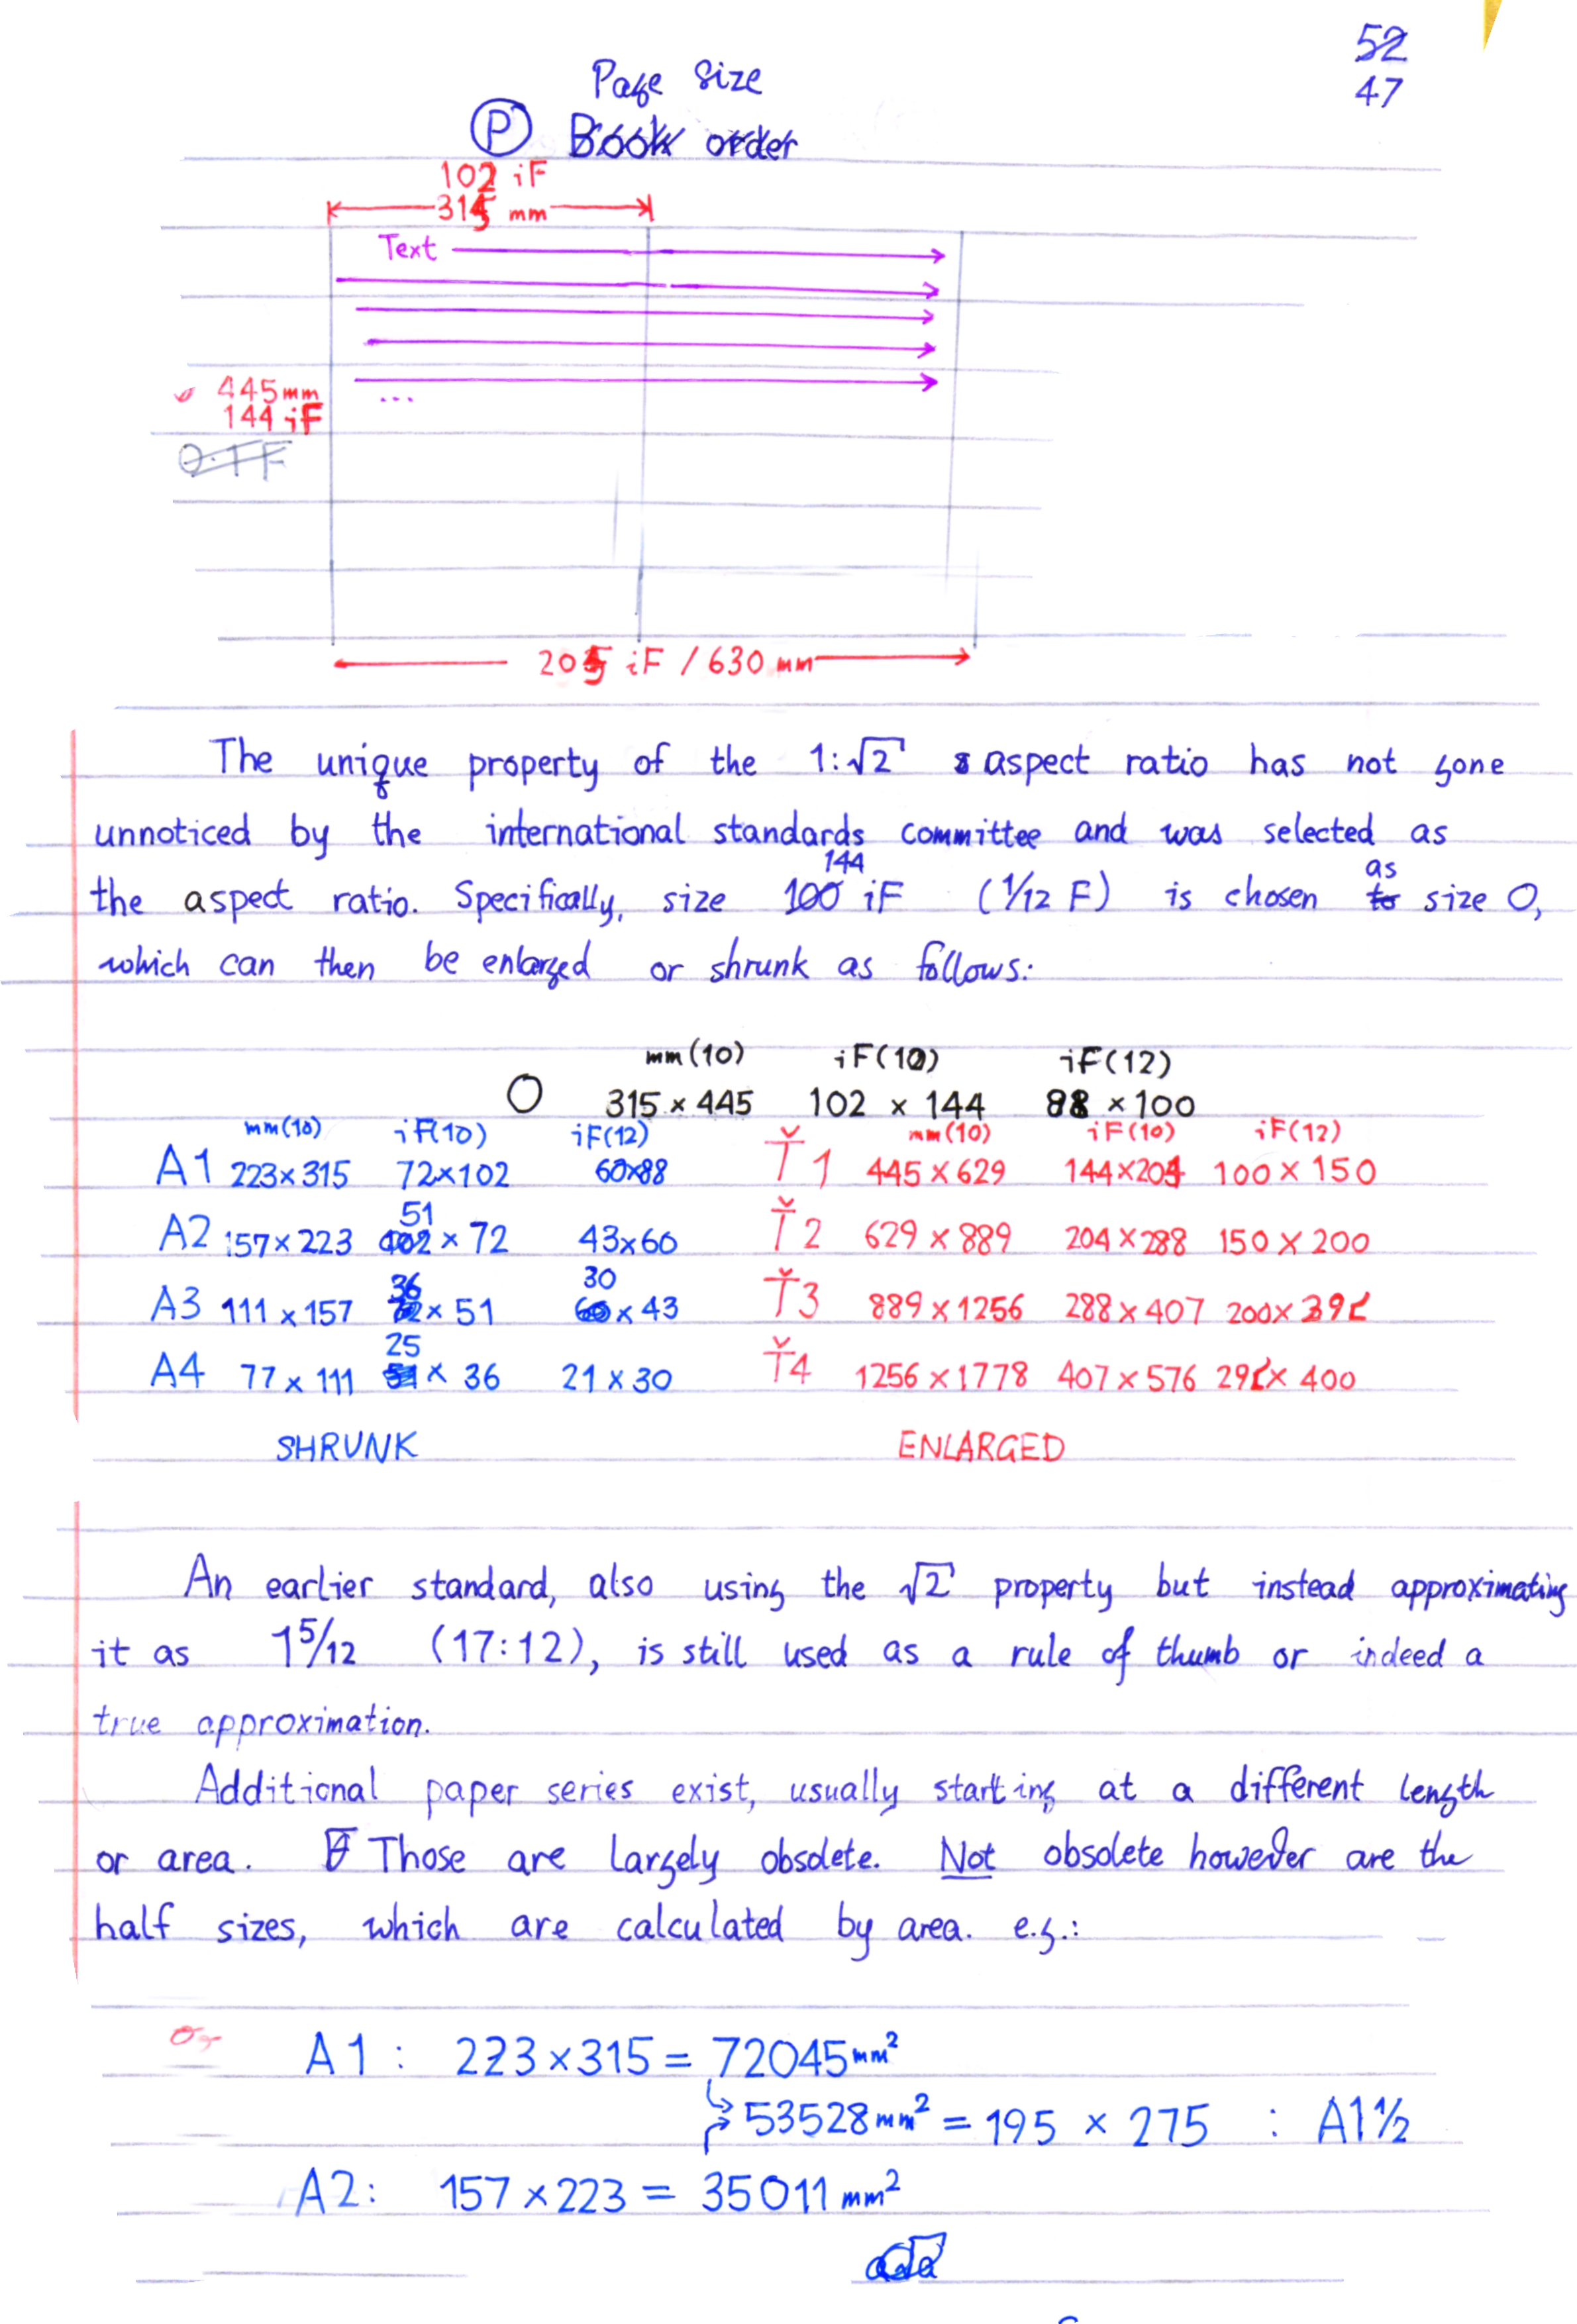 52
47
Page Size
P Book order
102 iF
315 mm
Text
...
445mm
144 iF
205 iF / 630 mm
The unique property of the 1:√2 aspect ratio has not gone
unnoticed by the international standards committee and was selected as
144
as
the aspect ratio. Specifically, size 100 iF (1/12 F) is chosen to size 0,
which can then be enlarged or shrunk as follows:
mm(10) iF(10) iF(12)
0 315 × 445 102 × 144 88 × 100
mm(10) iF(10) iF(12) mm(10) iF(10) iF(12)
A1 223×315 72×102 60×88 Ť1 445×629 144×204 100×150
51
A2 157×223 102×72 43×60 Ť2 629×889 204×288 150×200
36 30
A3 111×157 72×51 60×43 Ť3 889×1256 288×407 200×
25
A4 77×111 51×36 21×30 Ť4 1256×1778 407×576 × 400
SHRUNK ENLARGED
An earlier standard, also using the √2 property but instead approximating
it as 1 5/12 (17:12), is still used as a rule of thumb or indeed a
true approximation.
Additional paper series exist, usually starting at a different length
or area. Those are largely obsolete. Not obsolete however are the
half sizes, which are calculated by area. e.g.:
A1: 223×315 = 72045mm²
53528mm² = 195 × 275 : A1½
A2: 157×223 = 35011mm²